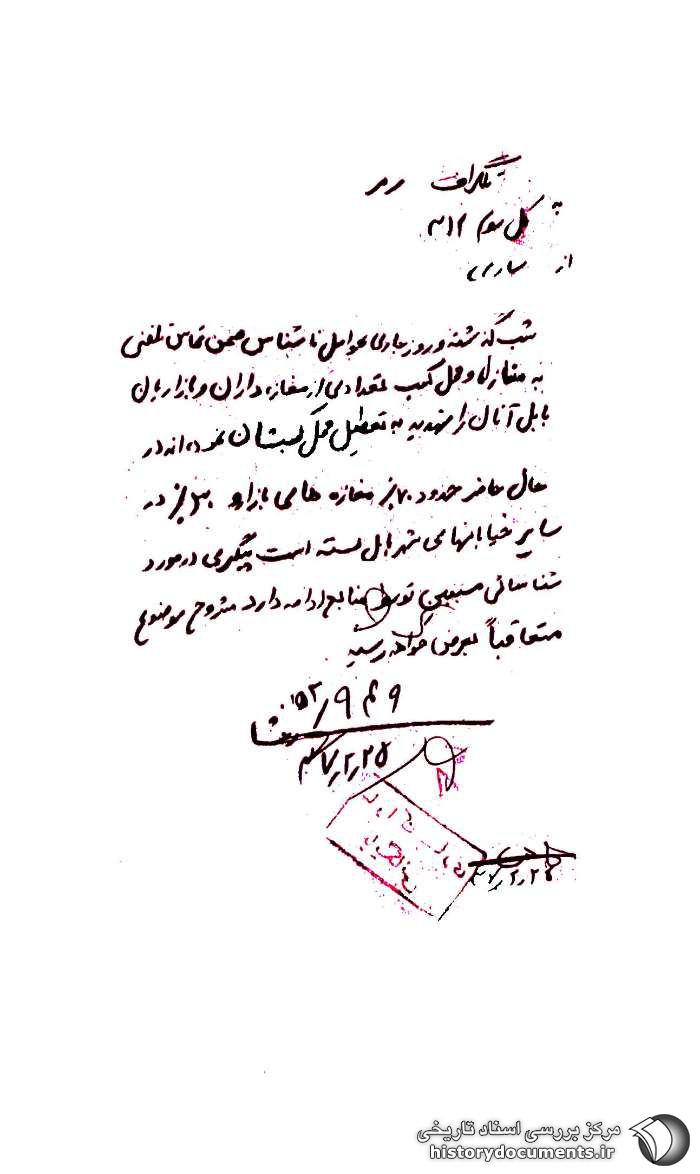 تلگراف رمز
به کل سوم ۳۱۲
از ساری
شب گذشته و روز جاری عوامل ناشناس ضمن تماس تلفنی
به منازل و محل کسب تعدادی از مغازه داران و بازاریان
بابل آنان را تهدید به تعطیل محل کسبشان نموده اند در
حال حاضر حدود ۷۰٪ مغازه های بازار و ۳۰٪ در
سایر خیابانهای شهر بابل بسته است پیگیری در مورد
شناسائی مسببین توسط منابع ادامه دارد مشروح موضوع
متعاقباً بعرض خواهد رسید
۳۷/۲/۲۵
۳۷/۲/۲۵
مرکز بررسی اسناد تاریخی
historydocuments.ir